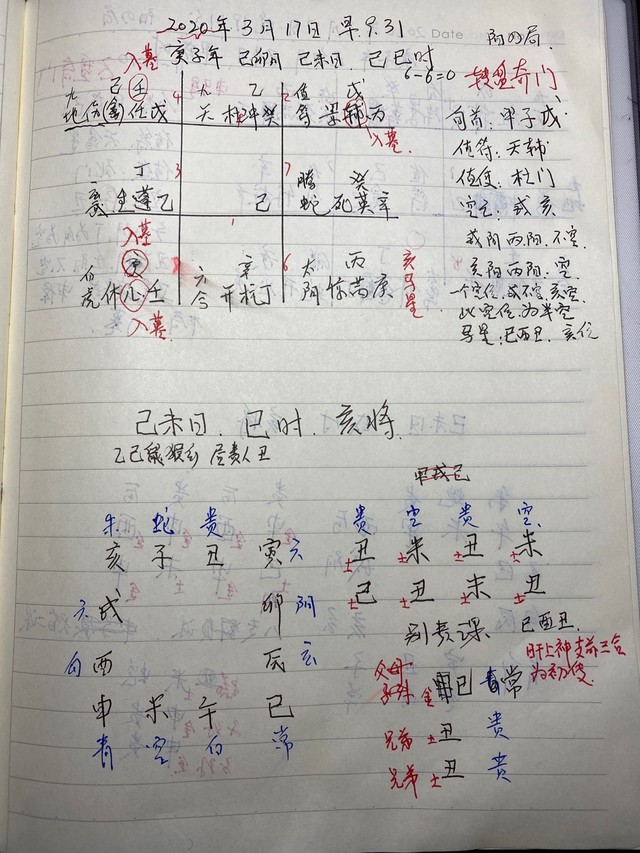 2020年3月17日 早9.31
阳四局.
入墓 庚子年 己卯月 己未日 己巳时
6-6=0 转盘奇门
九 己 壬 4
地 伤 任 戊
九 乙
天 杜 冲 癸
值 戊 2
符 景 辅 丙
入墓
丁 3
生 蓬 乙
己
1
7
腾 癸
蛇 死 英 辛
入墓
白 庚
虎 休 心 壬
入墓
六 辛
合 开 柱 丁
6 太 丙
阴 惊 芮 庚
亥马星
旬首:甲子戊
值符:天辅
值使:杜门
空亡:戌亥
戌阳 丙阳,不空
亥阴 丙阳.空
一个空位.戌不空.亥空.
此空位.为半空
马星:巳酉丑.亥位
己未日.巳时.亥将
乙己鼠猴乡 昼贵人丑
朱 蛇 贵
亥 子 丑 寅 六
玄 戌 卯 阴
白 酉 辰 玄
申 未 午 巳
青 空 白 常
贵 空 贵 空
土丑 土未 土丑 土未
土己 土丑 土未 土丑
别责课 巳酉丑.
肝上神支前三合
为初传
父母
子孙 金 巳 常
兄弟 土丑 贵
兄弟 土丑 贵